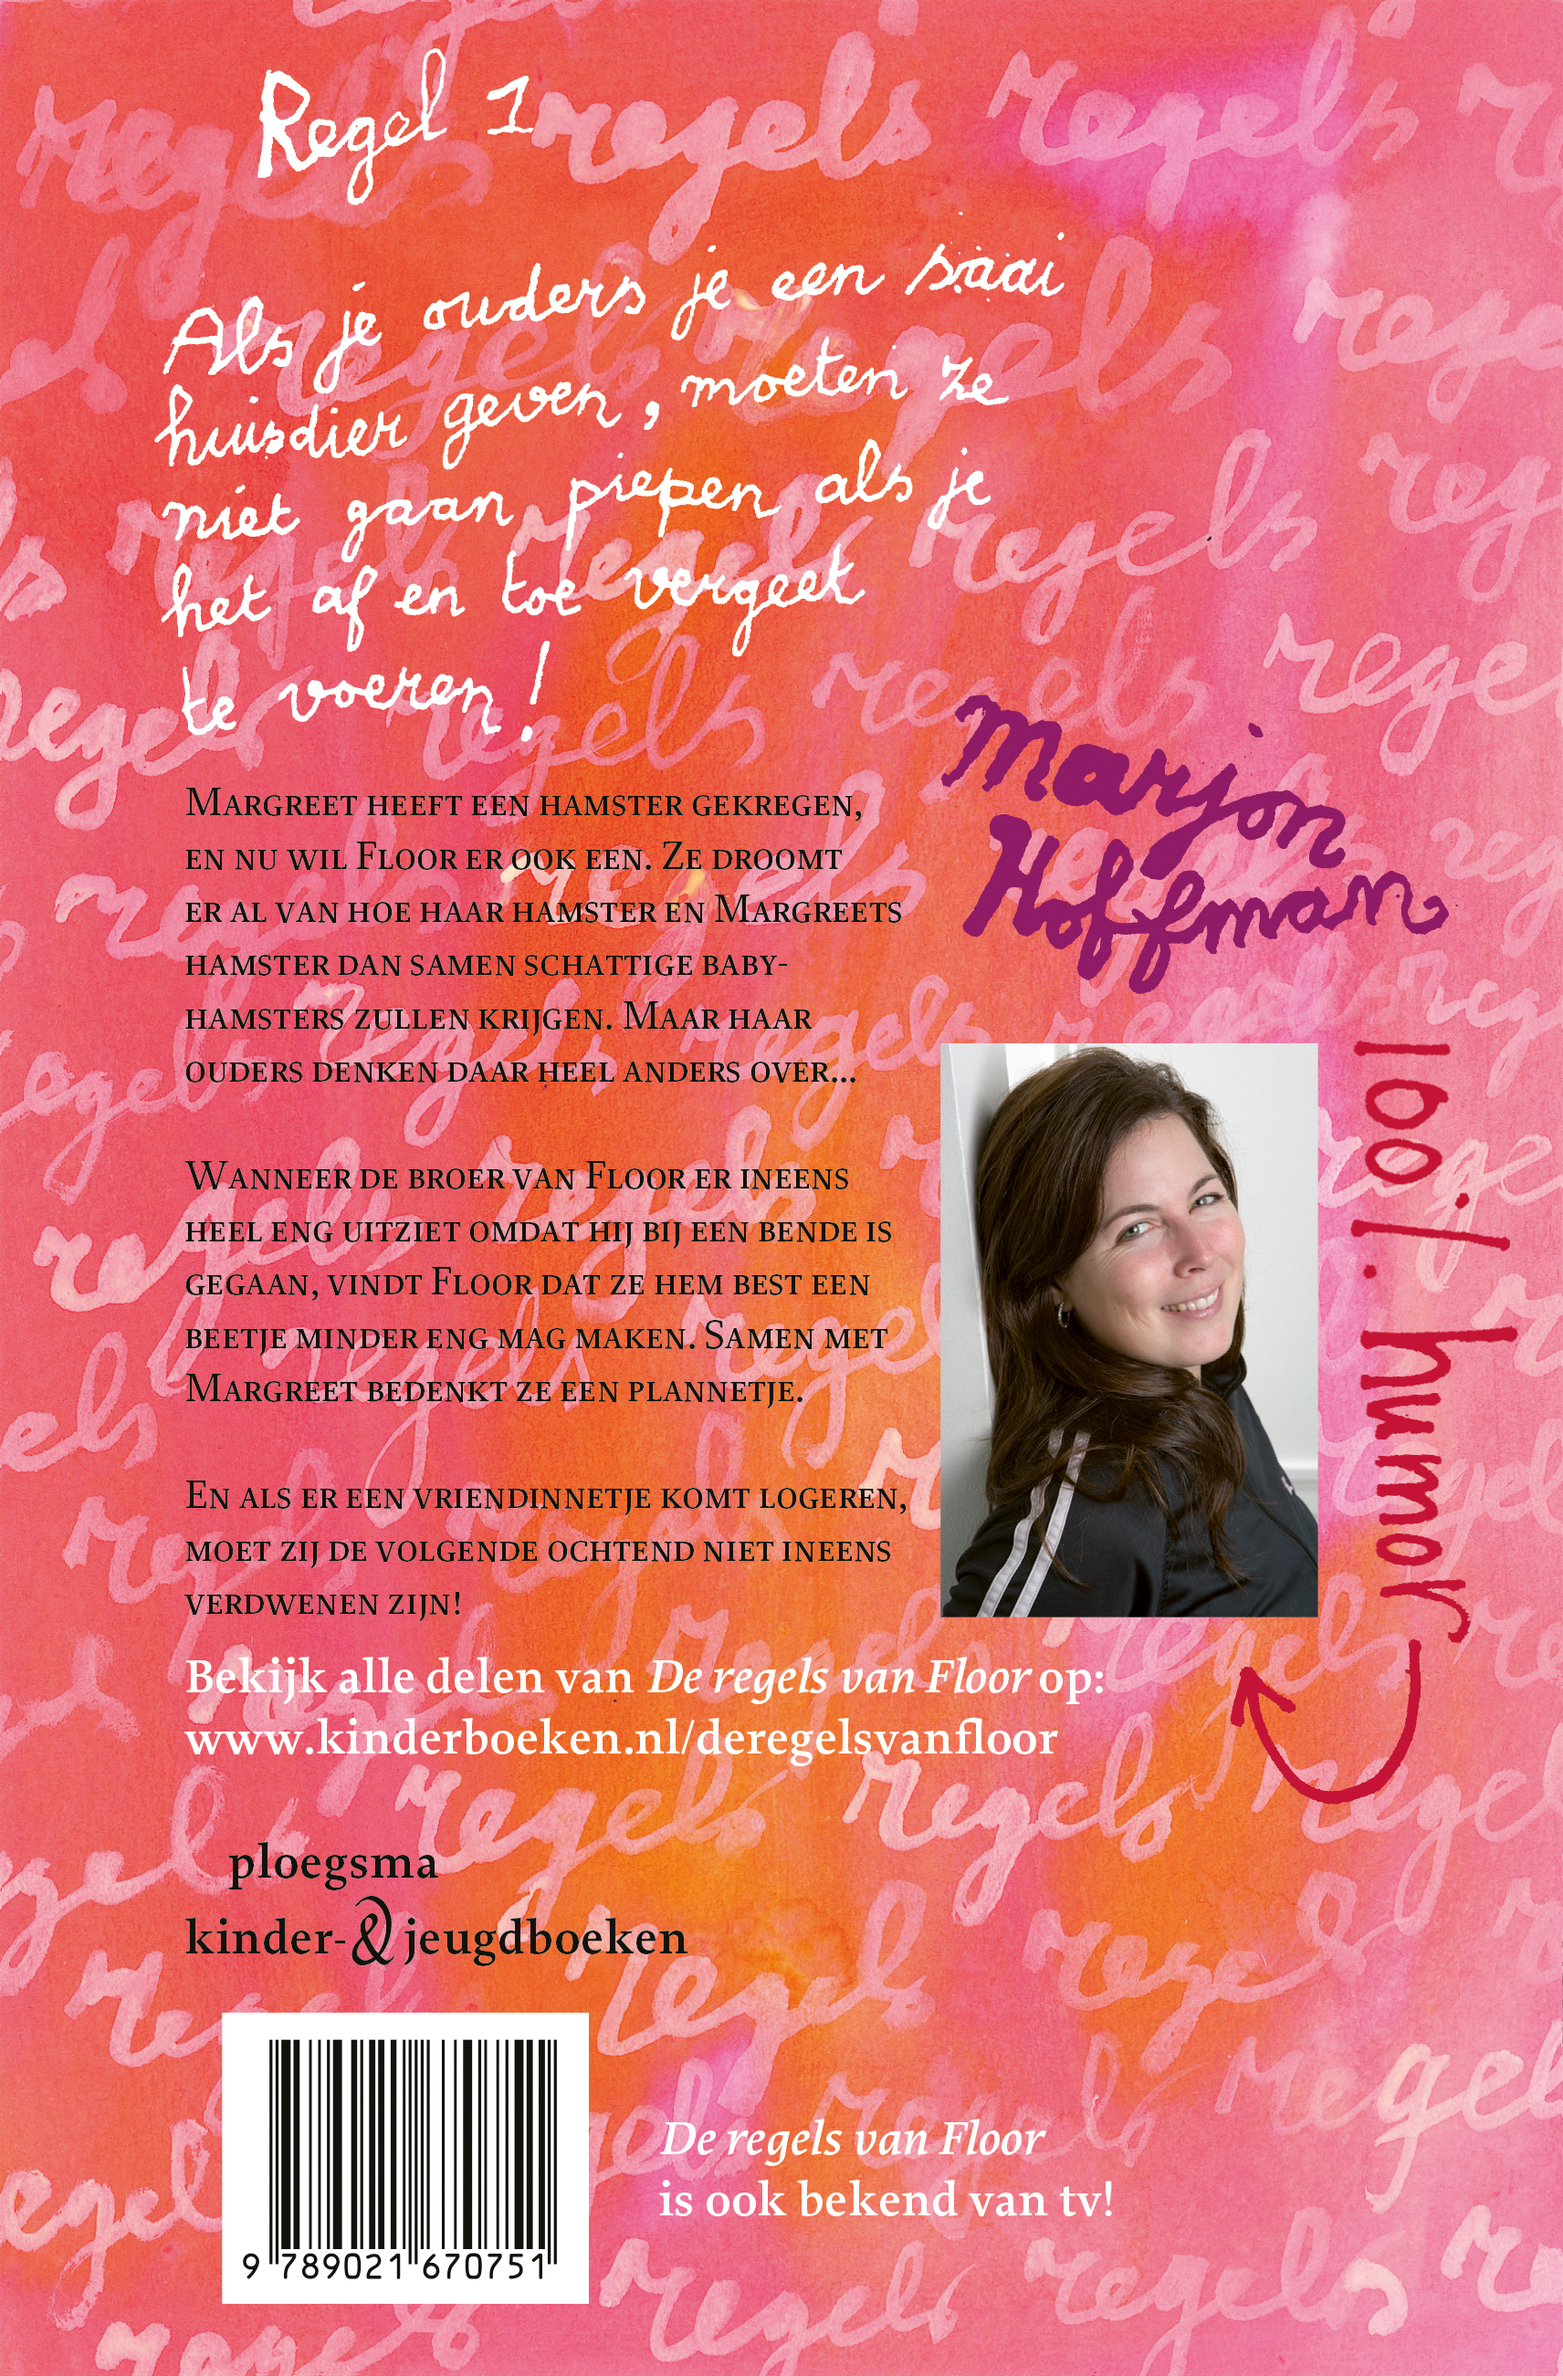 Regel 1
Als je ouders je een saai
huisdier geven, moeten ze
niet gaan piepen als je
het af en toe vergeet
te voeren!
Margreet heeft een hamster gekregen,
en nu wil Floor er ook een. Ze droomt
er al van hoe haar hamster en Margreets
hamster dan samen schattige baby-
hamsters zullen krijgen. Maar haar
ouders denken daar heel anders over...
Wanneer de broer van Floor er ineens
heel eng uitziet omdat hij bij een bende is
gegaan, vindt Floor dat ze hem best een
beetje minder eng mag maken. Samen met
Margreet bedenkt ze een plannetje.
En als er een vriendinnetje komt logeren,
moet zij de volgende ochtend niet ineens
verdwenen zijn!
Marjon
Hoffman
100% humor
Bekijk alle delen van De regels van Floor op:
www.kinderboeken.nl/deregelsvanfloor
ploegsma
kinder-& jeugdboeken
9 789021 670751
De regels van Floor
is ook bekend van tv!